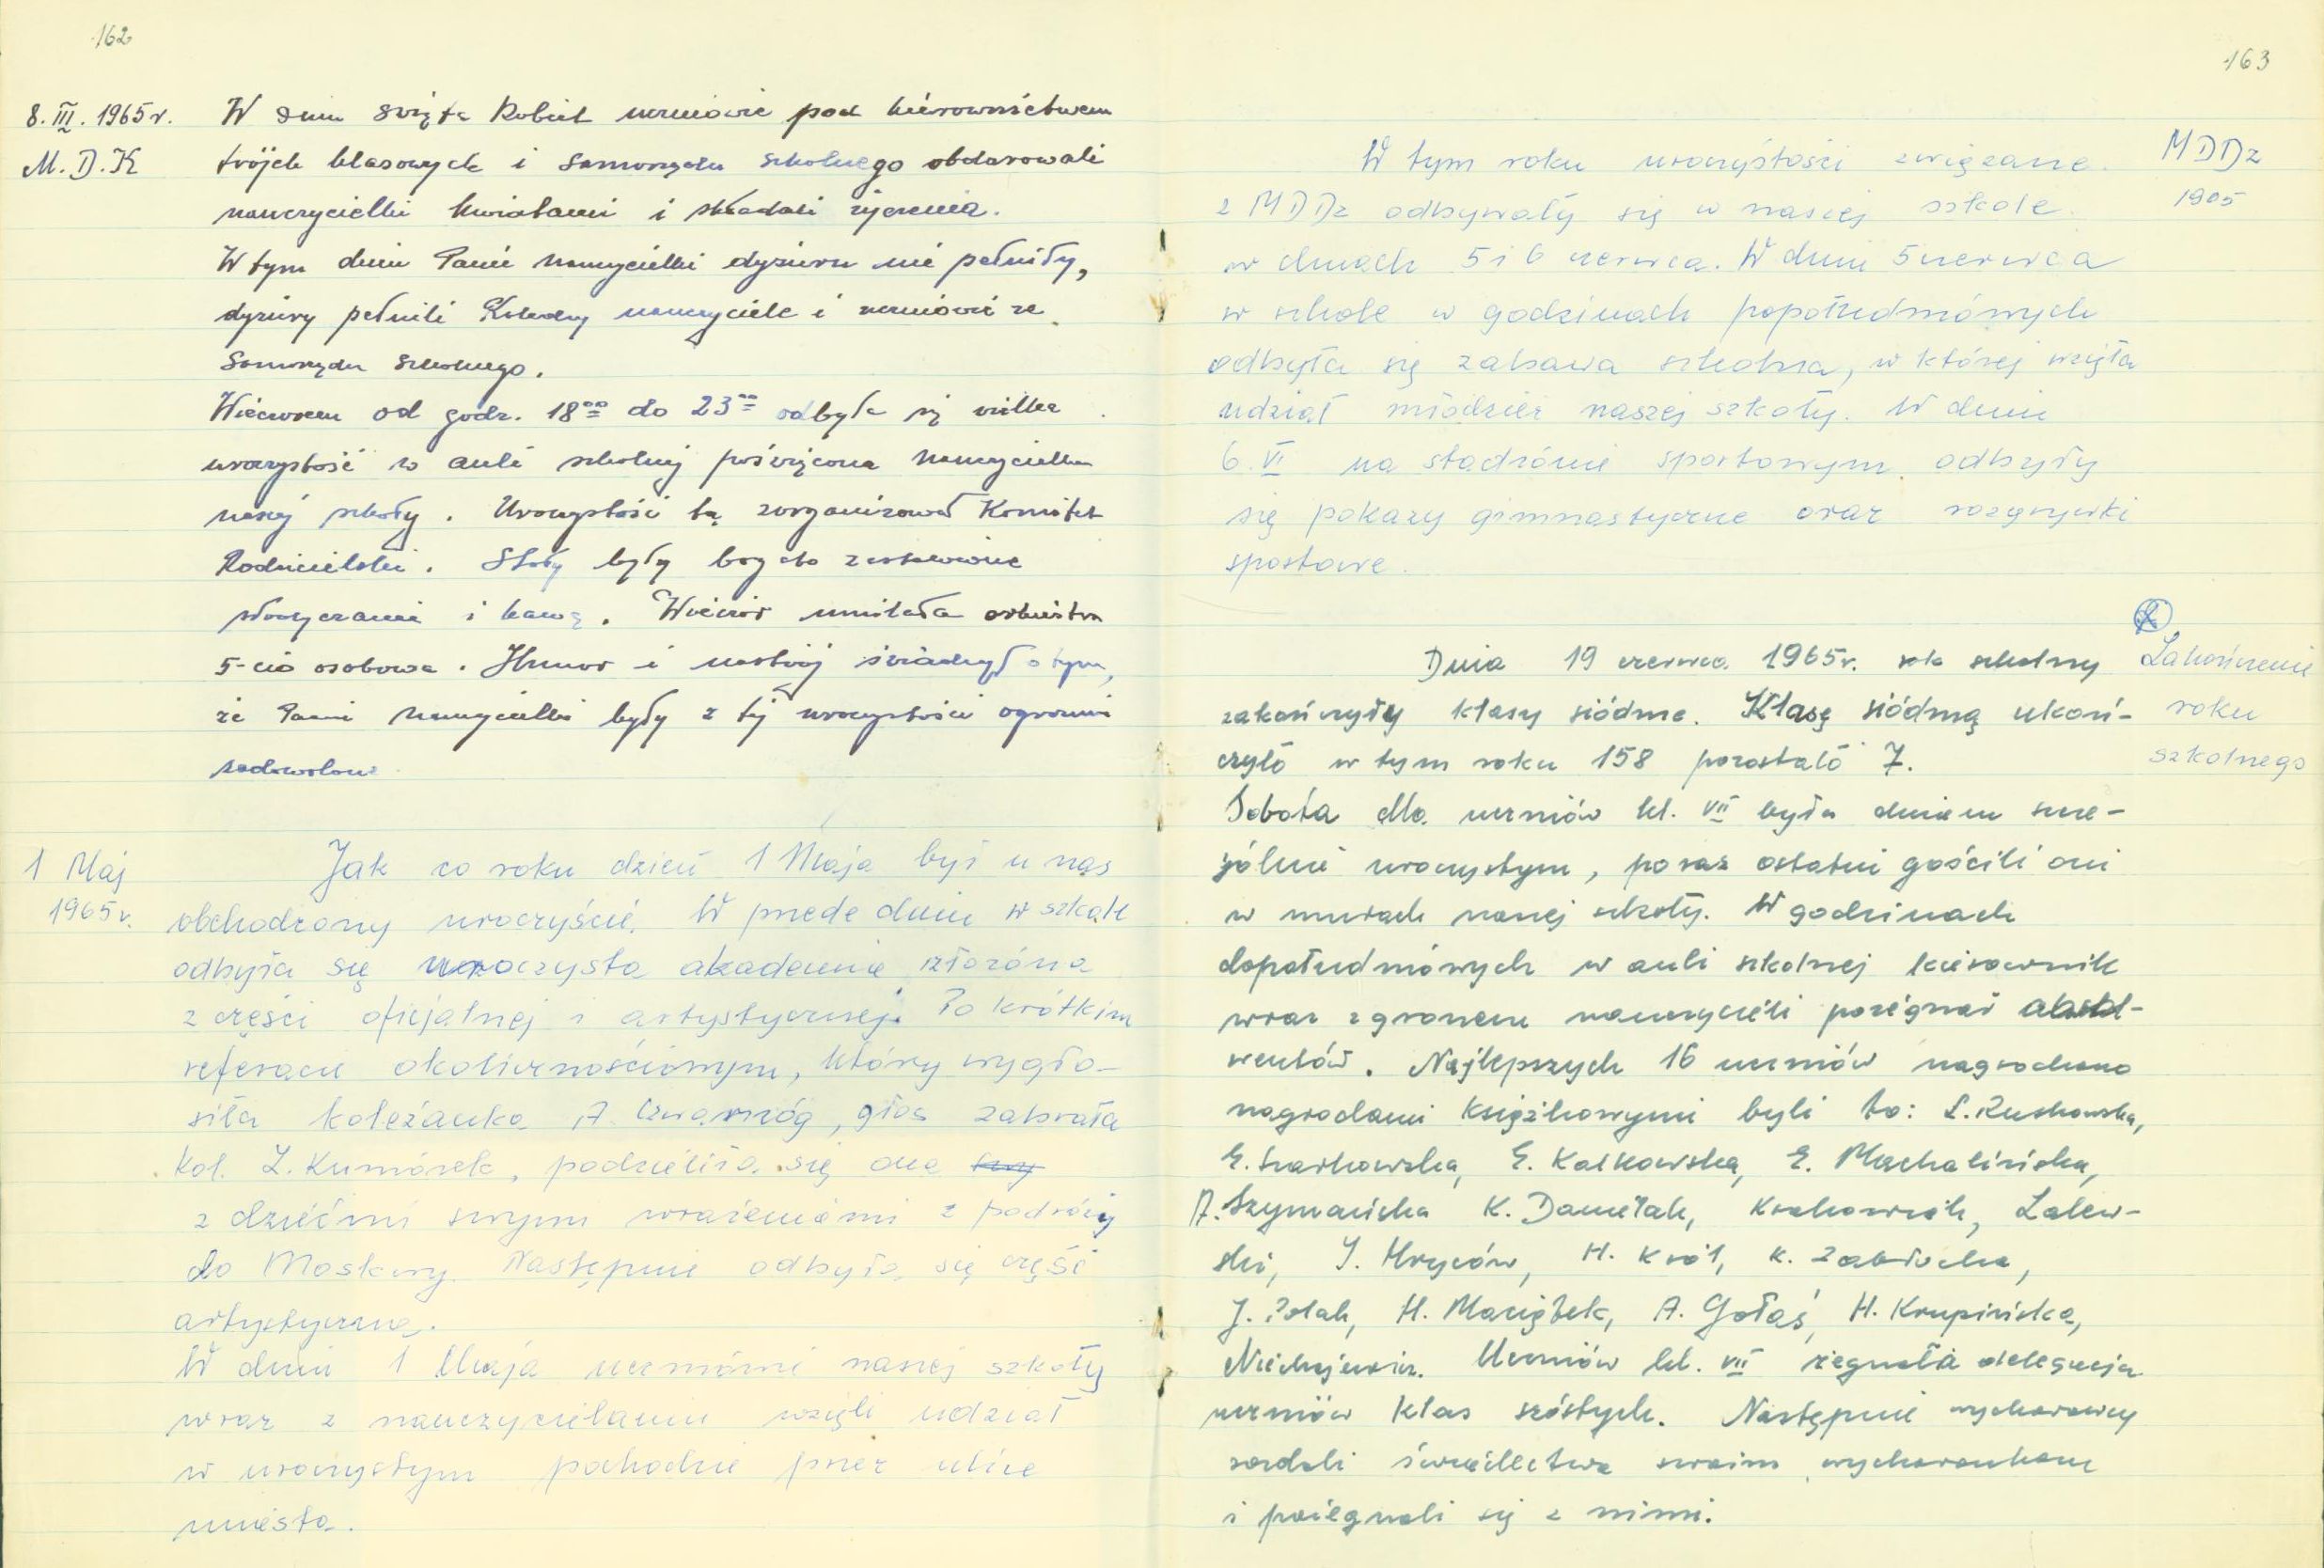 162
8. III. 1965 r.
M. D. K
W dniu święta Kobiet uczniowie pod kierownictwem
trójek klasowych i samorządu szkolnego obdarowali
nauczycielki kwiatami i składali życzenia.
W tym dniu Panie nauczycielki dyżuru nie pełniły,
dyżury pełnili Koledzy nauczyciele i uczniowie ze
samorządu szkolnego.
Wieczorem od godz. 18⁰⁰ do 23⁰⁰ odbyła się wielka
uroczystość w auli szkolnej poświęcona nauczycielkom
naszej szkoły. Uroczystość tą zorganizował Komitet
Rodzicielski. Stoły były bogato zastawione
słodyczami i kawą. Wieczór umilała orkiestra
5-cio osobowa. Humor i nastrój świadczył o tym,
że Panie nauczycielki były z tej uroczystości ogromnie
zadowolone.
1 Maj
1965 r.
Jak co roku dzień 1 Maja był u nas
obchodzony uroczyście. W przede dniu w szkole
odbyła się uroczysta akademia złożona
z części oficjalnej i artystycznej. Po krótkim
referacie okolicznościowym, który wygło-
siła koleżanka A. Czwarnóg, głos zabrała
Kol. Z. Kumórek, podzieliła się ona
z dziećmi swymi wrażeniami z podróży
do Moskwy. Następnie odbyła się część
artystyczna.
W dniu 1 Maja uczniowie naszej szkoły
wraz z nauczycielami wzięli udział
w uroczystym pochodzie przez ulice
miasta.
163
MDDz
1965
W tym roku uroczystości związane
z MDDz odbywały się w naszej szkole
w dniach 5 i 6 czerwca. W dniu 5 czerwca
w szkole w godzinach popołudniowych
odbyła się zabawa szkolna, w której wzięła
udział młodzież naszej szkoły. W dniu
6. VI na stadionie sportowym odbyły
się pokazy gimnastyczne oraz rozgrywki
sportowe.
Zakończenie
roku
szkolnego
Dnia 19 czerwca 1965 r. rok szkolny
zakończyły klasy siódme. Klasę siódmą ukoń-
czyło w tym roku 158 pozostało 7.
Sobota dla uczniów kl. VII była dniem szcze-
gólnie uroczystym, po raz ostatni gościli oni
w murach naszej szkoły. W godzinach
dopołudniowych w auli szkolnej kierownik
wraz z gronem nauczycieli pożegnał absol-
wentów. Najlepszych 16 uczniów nagrodzono
nagrodami książkowymi byli to: L. Ruskowska,
E. Szarkowska, E. Kalkowska, E. Machalińska,
A. Szymańska K. Danielak, Krakowiak, Zalew-
ski, J. Hryców, H. Król, K. Zabłocka,
J. Polak, H. Maciążek, A. Gołaś, H. Krupińska,
Niechajewicz. Uczniów kl. VII żegnała delegacja
uczniów klas szóstych. Następnie wychowawcy
rozdali świadectwa swoim wychowankom
i pożegnali się z nimi.